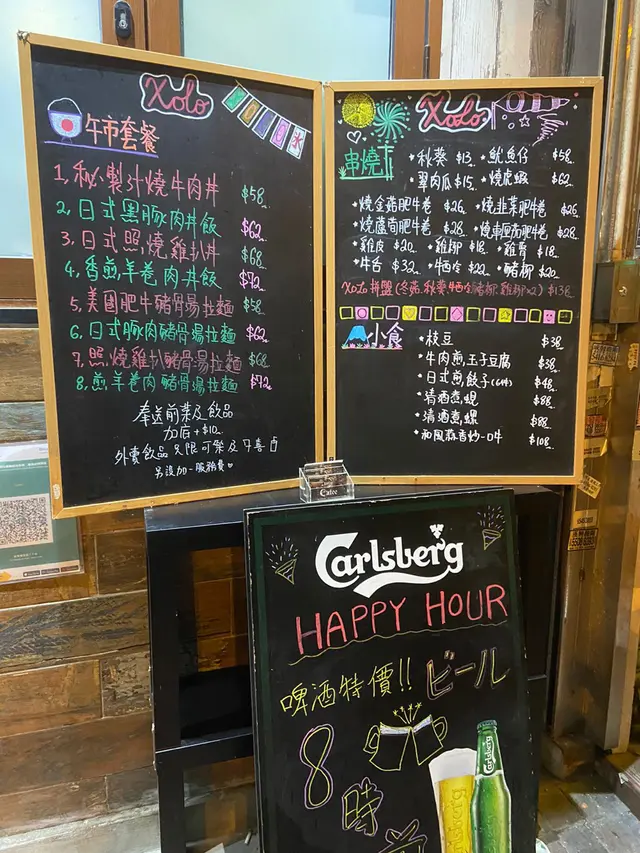 Xolo
午市套餐
1. 秘製汁燒牛肉丼 $58
2. 日式黑豚肉丼飯 $62
3. 日式照燒雞扒丼 $68
4. 香煎羊卷肉丼飯 $72
5. 美國肥牛豬骨湯拉麵 $58
6. 日式豚肉豬骨湯拉麵 $62
7. 照燒雞扒豬骨湯拉麵 $68
8. 煎羊卷肉豬骨湯拉麵 $72
奉送前菜及飲品
加底+$10
外賣飲品只限可樂及
另設加一服務費
Xolo
串燒
·秋葵 $13 ·魷魚仔 $58
·翠肉瓜 $15 ·燒虎蝦 $62
·燒金菇肥牛卷 $26 ·燒韭菜肥牛卷 $26
·燒蘆筍肥牛卷 $28 ·燒車厘茄肥牛卷 $28
·雞皮 $20 ·雞柳 $18 ·雞胃 $18
·牛舌 $32 ·牛西冷 $22 ·豬柳 $20
Xolo 拼盤 (冬菇,秋葵,牛西冷,豬柳,雞柳x2) $138
小食
·枝豆 $38
·牛肉煎玉子豆腐 $38
·日式煎餃子(6件) $48
·清酒煮蜆 $88
·清酒煮螺 $88
·和風蒜香炒一口牛 $108
Cafee
Carlsberg
HAPPY HOUR
啤酒特價!! ビール
8時前
Carlsberg
Carlsberg